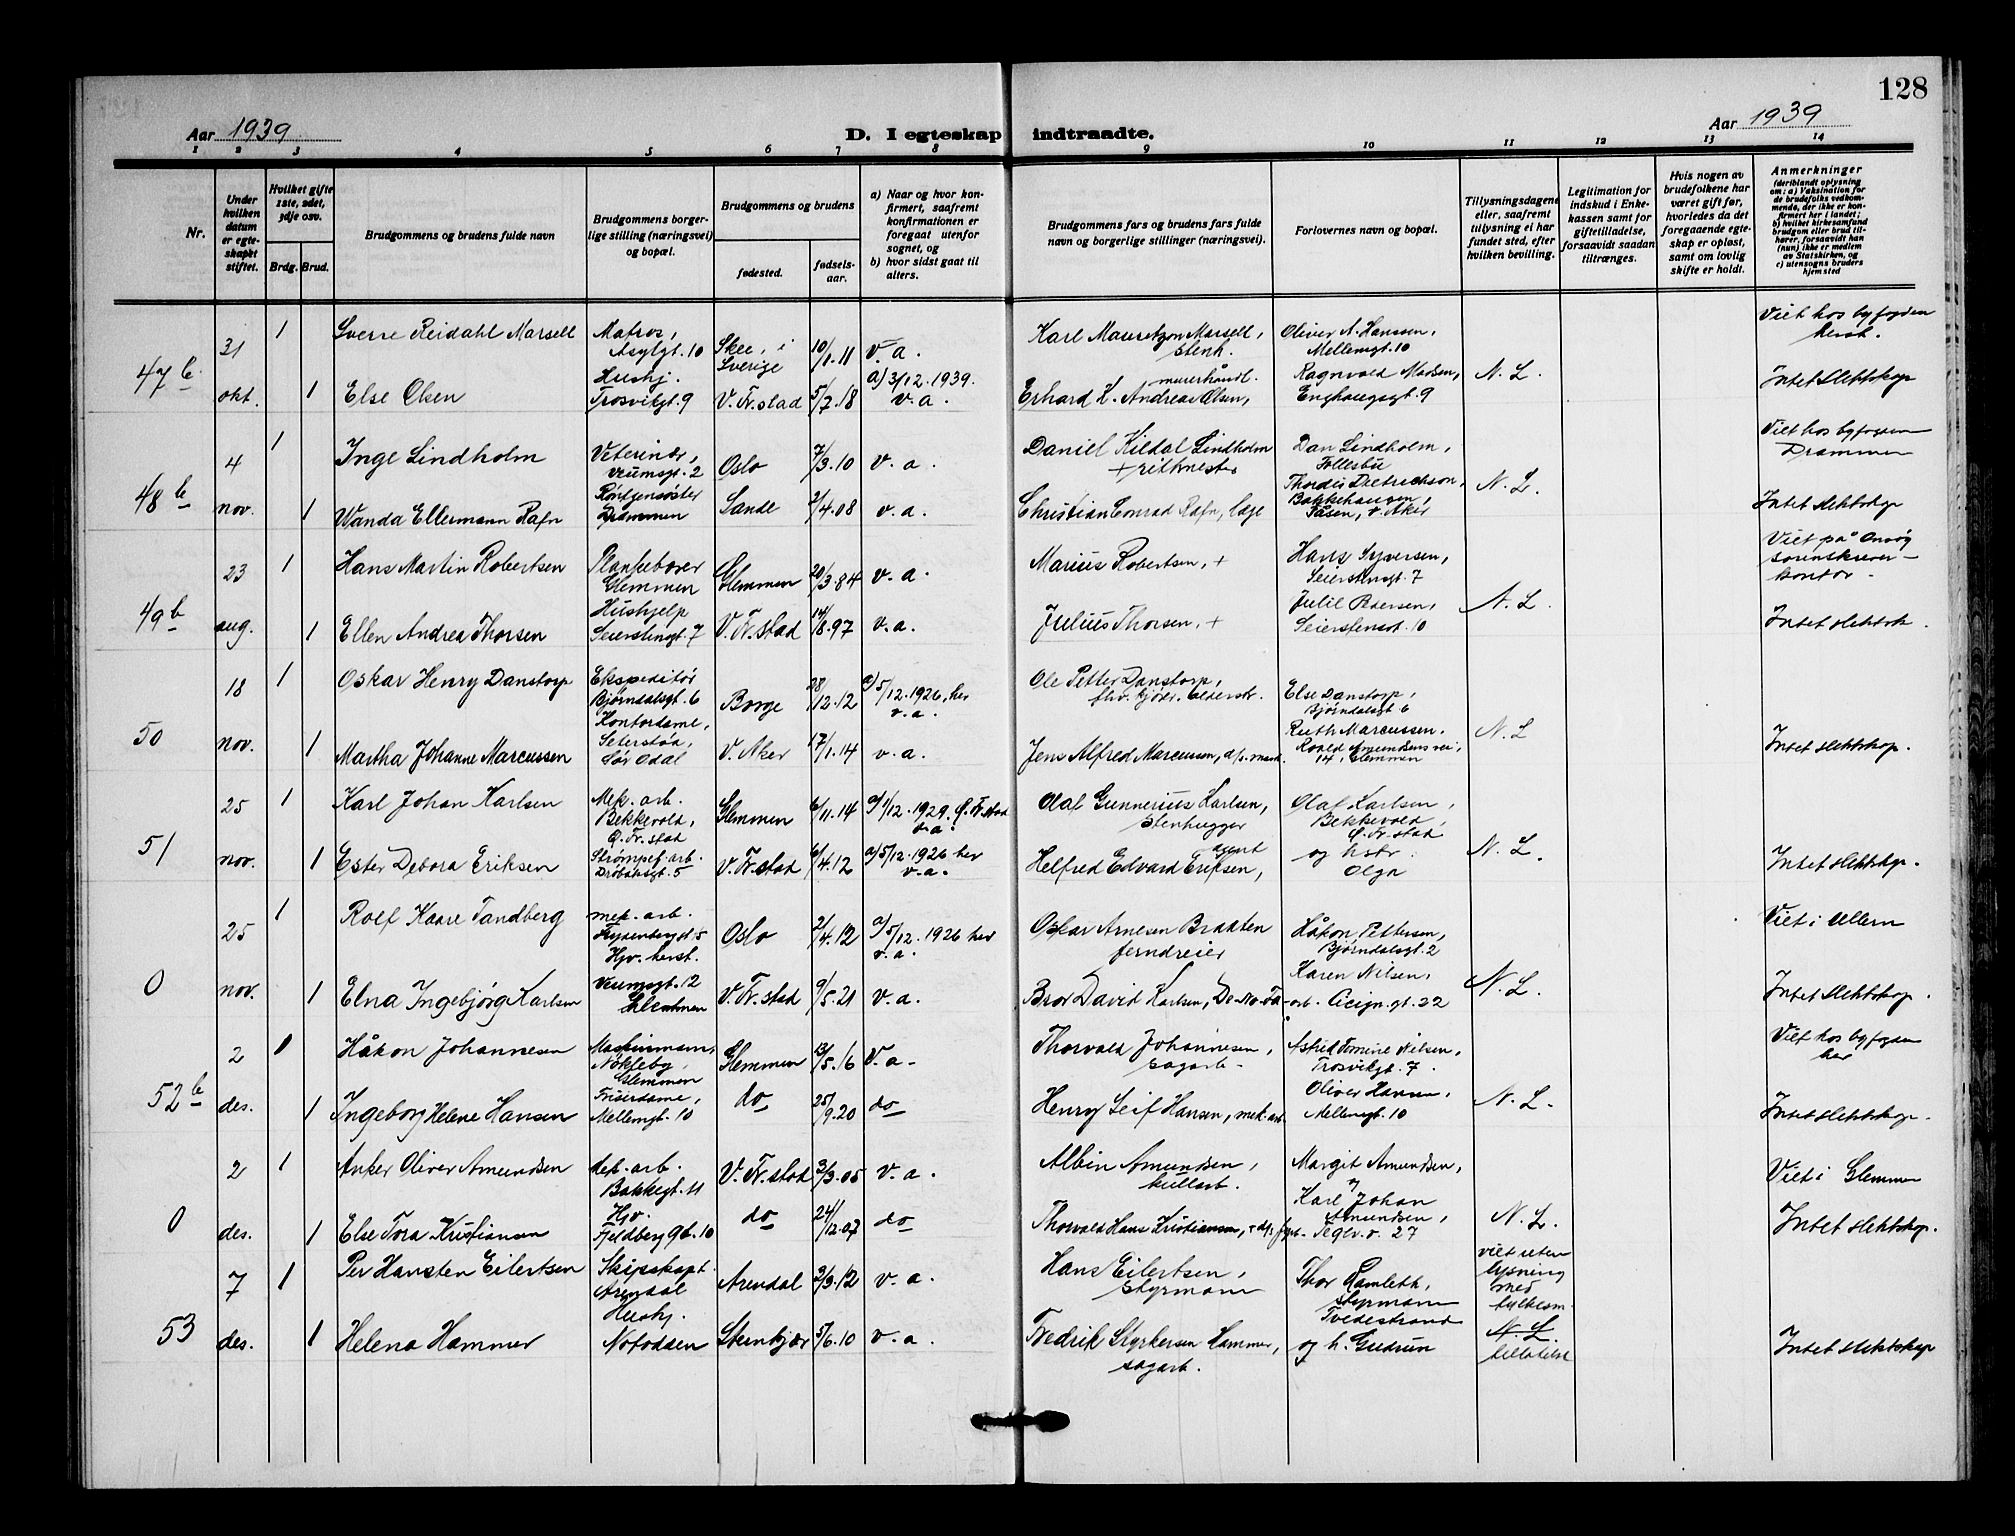 128
Aar 1939
D. I egteskap indtraadte.
Aar 1939
1 2 3 4 5 6 7 8 9 10 11 12 13 14
Nr.
Under hvilken datum er egteskapet stiftet.
Hvilket gifte 1ste, 2det, 3dje osv.
Brdg. Brud.
Brudgommens og brudens fulde navn
Brudgommens borgerlige stilling (næringsvei) og bopæl.
Brudgommens og brudens
fødested.
fødselsaar.
a) Naar og hvor konfirmert, saafremt konfirmationen er foregaat utenfor sognet, og
b) hvor sidst gaat til alters.
Brudgommens fars og brudens fars fulde navn og borgerlige stillinger (næringsvei).
Forlovernes navn og bopæl.
Tillysningsdagene eller, saafremt tillysning ei har fundet sted, efter hvilken bevilling.
Legitimation for indskud i Enkekassen samt for giftetilladelse, forsaavidt saadan tiltrænges.
Hvis nogen av brudefolkene har været gift før, hvorledes da det foregaaende egteskap er opløst, samt om lovlig skifte er holdt.
Anmerkninger
(deriblandt oplysning om: a) Vaksination for de brudefolks vedkommende, der ikke er konfirmert her i landet; b) hvilket kirkesamfund brudgom eller brud tilhører, forsaavidt han (hun) ikke er medlem av Statskirken, og c) utensogns bruders hjemsted
47b 31 okt.
1 Sverre Reidahl Marsell
Matros, Asylgt. 10
Skee, i Sverige
10/1.11
v. a.
Karl Mauritzon Marsell, stenh.
Oliver A. Hanssen, Mellemgt. 10
Viet hos byfogden herst.
1 Else Olsen
Hushj. Trosvikgt. 9
V. Fr.stad
5/7.18
a) 3/12.1939. v. a.
Erhard L. Andreas Olsen, murerhåndl.
Ragnvald Madsen, Enghaugsgt. 9
N. L.
Intet slektskap
48b 4 nov.
1 Inge Lindholm
Veterinær, Veumsgt. 2
Oslo
7/3.10
v. a.
Daniel Kildal Lindholm + ritmester
Dan Lindholm, Follesbu
Viet hos byfogden Drammen
1 Wanda Ellermann Rafn
Røntgensøster Drammen
Sande
2/4.08
v. a.
Christian Conrad Rafn, læge
Thordis Dietrichson, Bakkehaugen, Tåsen, v. Aker
N. L.
Intet slektskap
49b 23 aug.
1 Hans Martin Robertsen
Plankebærer Glemmen
Glemmen
20/3.84
v. a.
Marius Robertsen, +
Hans Syversen, Seierstensgt. 7
Viet på Onsøy sorenskriverkontor.
1 Ellen Andrea Thorsen
Hushjelp Seierstengt. 7
V. Fr.stad
14/8.97
v. a.
Julius Thorsen, +
Julil Pedersen, Seierstensgt. 10
N. L.
Intet slektsk.
50 18 nov.
1 Oskar Henry Danstorp
Ekspeditør Bjørndalsgt. 6
Borge
28/12.12
a) 5/12.1926, her v. a.
Ole Petter Danstorp,
Else Danstorp, Bjørndalsgt 6
1 Martha Johanne Marcussen
Kontordame, Seterstøa, Sør Odal
V. Aker
17/1.14
v. a.
Jens Alfred Marcussen,
Ruth Marcussen, Roald Amundsens vei, 14, Glemmen
N. L
Intet slektskap.
51 25 nov.
1 Karl Johan Karlsen
Mek. arb. Bekkevold, Ø. Fr. stad
Glemmen
6/11.14
a) 1/12.1929. Ø. Fr. stad v. a.
Olaf Gunnerius Karlsen, stenhugger
Olaf Karlsen, Bekkevold, Ø. Fr. stad
1 Ester Debora Eriksen
Strømpef. arb. Drøbaksgt. 5
V. Fr.stad
6/4.12
a) 5/12.1926 her v. a.
Helfred Edvard Eriksen, agent
og hstr. Olga
N. L.
Intet slektskap.
0 25 nov.
1 Rolf Kaare Tandberg
mek. arb. Frydenberggt. 5
Oslo
2/4.12
a) 5/12.1926 her v. a.
Oskar Arnesen Braaten ferndreier
Håkon Pettersen, Bjørndalsgt. 2
Viet i Ullern
1 Elna Ingebjørg Karlsen
Hjv. herst. Veumsgt. 12 Glemmen
V. Fr.stad
9/5.21
v. a.
Bror David Karlsen, De-No-Fa-arb.
Karen Nilsen, Cicign. gt. 22
N. L.
Intet slektskap.
52b 2 des.
1 Håkon Johannesen
Maskinmann, Nøkleby, Glemmen
Glemmen
13/5.16
v. a.
Thorvald Johannesen, sagarb.
Astrid Tomine Nilsen, Trosvikgt. 7.
Viet hos byfogden her
1 Ingeborg Helene Hansen
Frisørdame, Mellemgt. 10
do
25/9.20
do
Henry Leif Hansen, mek. arb.
Oliver Hansen, Mellemgt. 10
N. L.
Intet slektskap.
0 2 des.
1 Anker Oliver Amundsen
Mek. arb. Bakkegt. 11
V. Fr. stad
3/3.05
v. a.
Albin Amundsen, kullarb.
Margit Amundsen,
Viet i Glemmen
1 Else Tora Kristiansen
Hjv. Fjeldberggt. 10
do
24/12.07
do
Thorvald Hans Kristiansen,
Karl Johan Amundsen, Teglv. v. 27
N. L.
Intet slektskap.
53 7 des.
1 Per Hansten Eilertsen
Skipskapt. Arendal
Arendal
2/3.12
v. a.
Hans Eilertsen, styrmann
Thor Hamleth, styrmann Tvedestrand
viet uten lysning med
1 Helena Hammer
Hushj. Notodden
Steinkjær
5/6.10
v. a.
Fredrik Styrkersen Hammer, sagarb.
og h. Gudrun
N. L.
Intet slektskap